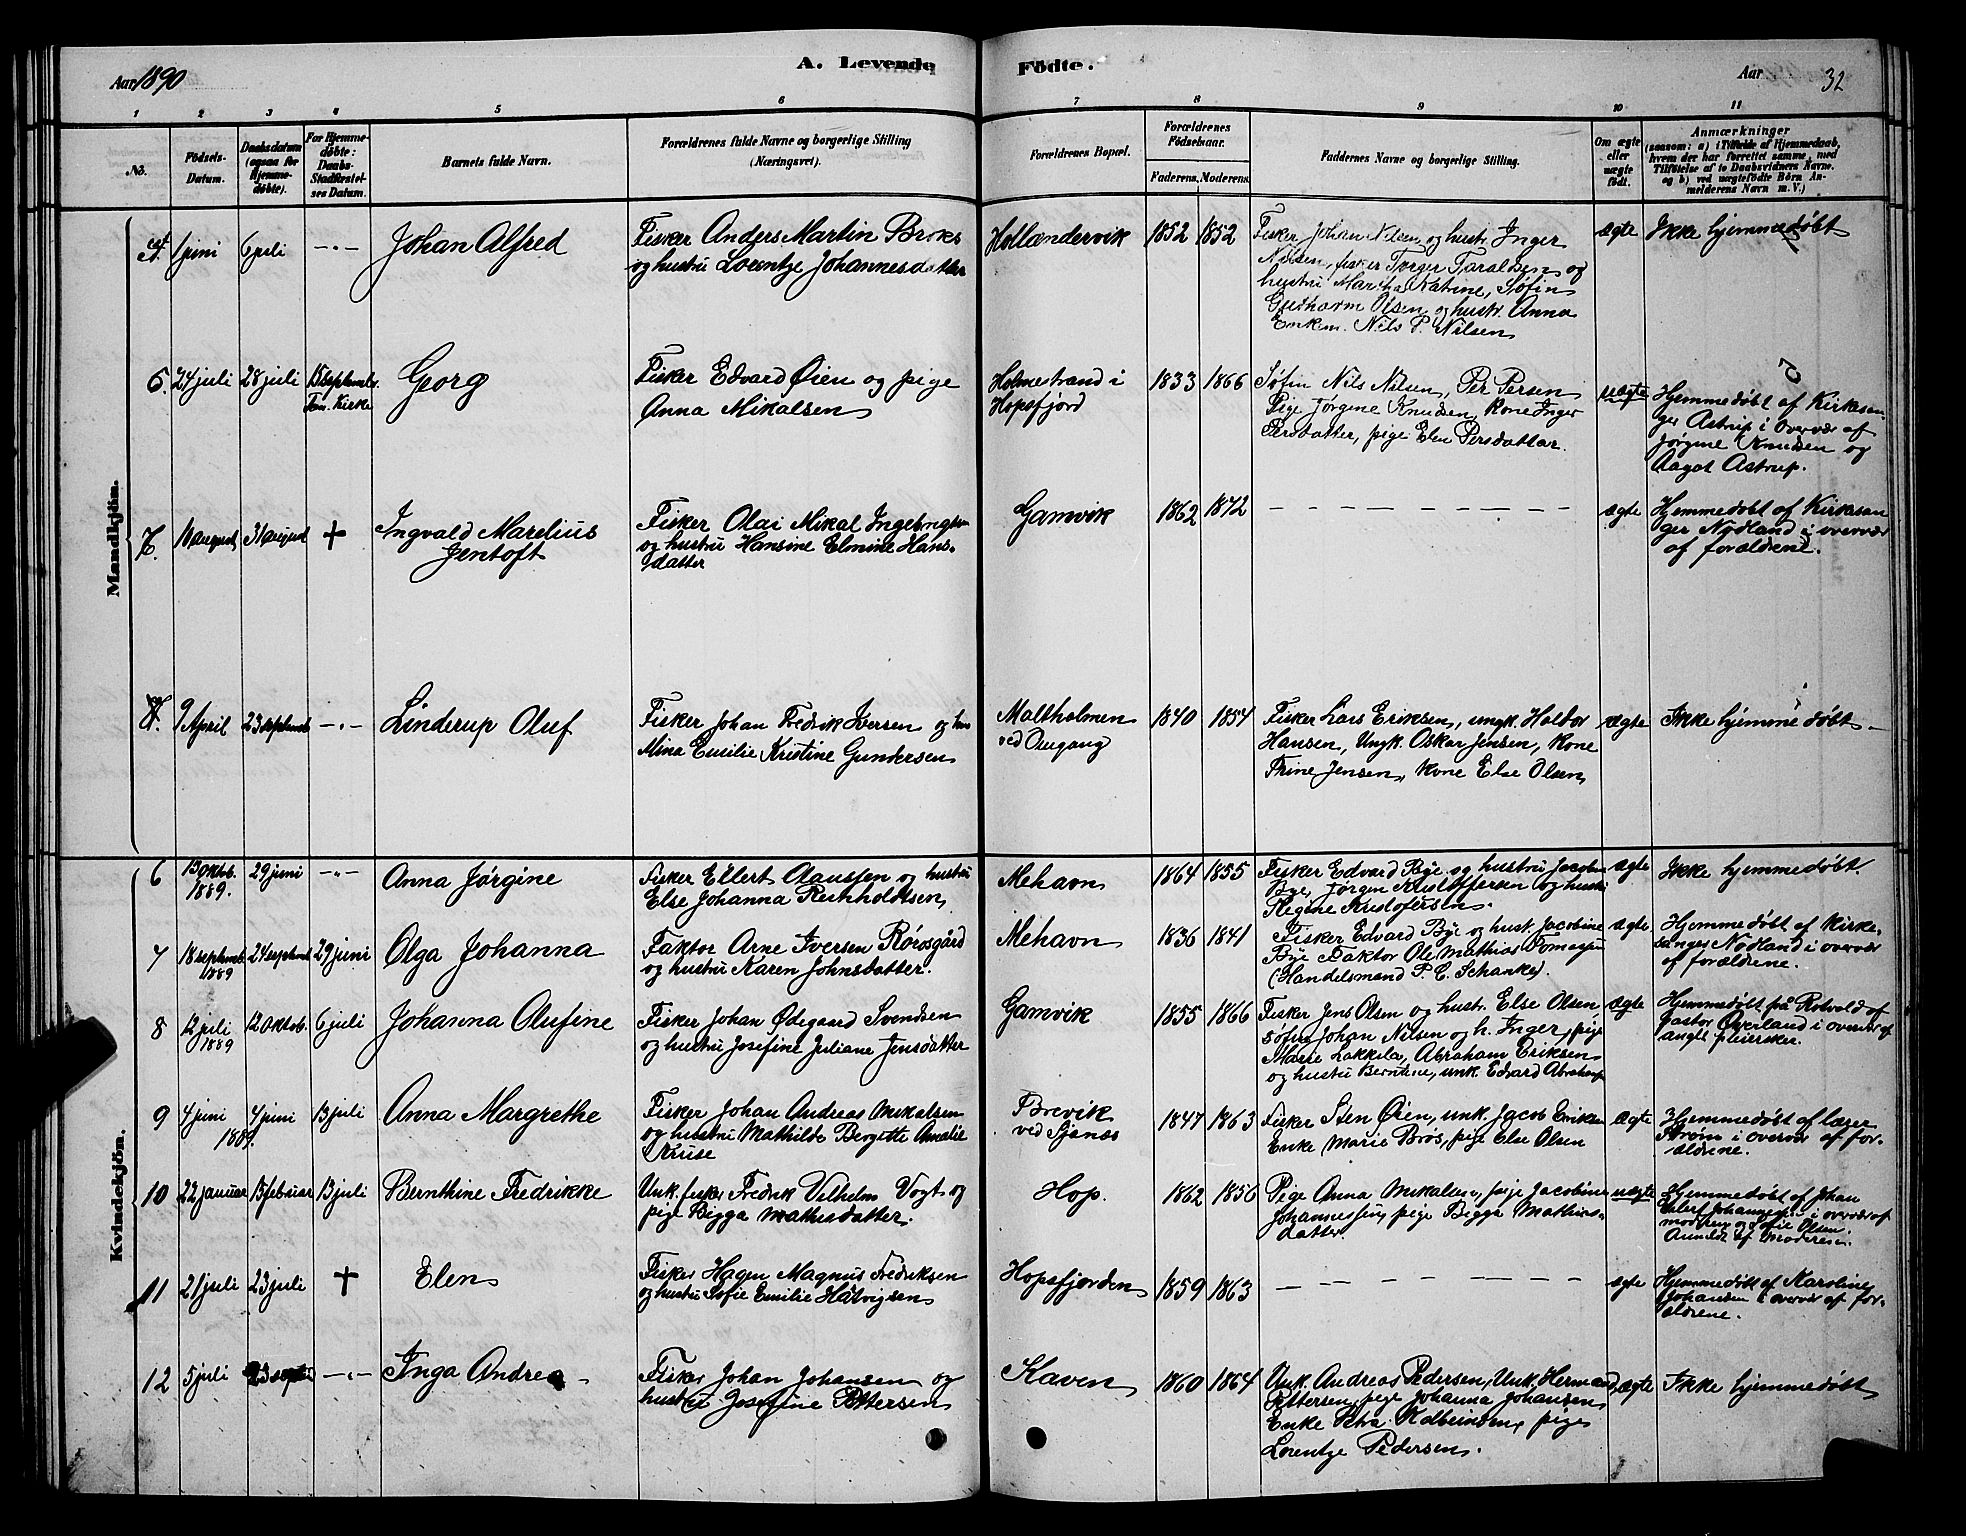 Aar 1890
A. Levende Födte.
Aar
32
1 2 3 4 5 6 7 8 9 10 11
No.
Födsels-
Datum.
Daabsdatum
(ogsaa for
Hjemme-
døbte).
For Hjemme-
døbte:
Daabs-
Stadfæstel-
ses Datum.
Barnets fulde Navn.
Forældrenes fulde Navne og borgerlige Stilling
(Næringsvei).
Forældrenes Bopæl.
Forældrenes
Födselsaar.
Faderens. Moderens.
Faddernes Navne og borgerlige Stilling.
Om ægte
eller
uægte
født.
Anmærkninger
(saasom: a) i Tilfælde af Hjemmedaab,
hvem der har forrettet samme, med
Tilføielse af to Daabsvidners Navne.
og b) ved uægtefødte Børn An-
melderens Navn m. V.)
Mandkjön.
1 juni 6 juli Johan Alfred
Fisker Anders Martin Broks
og hustru Lorentze Johannesdatter
Hollandervik 1852 1852
Fisker Johan Nilsen og hustr. Inger
Nilsen, fisker Torger Taraldsen og
hustru Martha Katrine, Søfin
Gutharm Olsen og hustr. Anna
Enkem. Nils P. Nilsen
ægte Ikke hjemmedøbt
6. 24 juli 28 juli 15 septembr.
Tan. Kirke
Georg
Fisker Edvard Øien og pige
Anna Mikalsen
Holmestrand i
Hopsfjord
1833 1866
Søfin Nils Nilsen, Per Persen
Pige Jørgine Knudsen, Kone Inger
Persdatter, pige Elen Persdatter.
uægte
Hjemmedøbt af Kirkesan-
ger Astrup i overvær af
Jørgine Knudsen og
Aagot Astrup.
7. august 31 august +
Ingvald Marelius
Jentoft
Fisker Olai Mikal Ingebrigtsen
og hustru Hansine Elmine Hans-
datter
Gamvik 1862 1872
ægte
Hjemmedøbt af Kirkesan
ger Nødland i overvær
af forældrene.
8. 9 April 23 septemb
Linderup Oluf
Fisker Johan Fredrik Iversen og hus
Mina Emilie Kristine Gundersen
Maltholmen
ved Omgang
1840 1854
Fisker Lars Eriksen, ungk. Haldor
Hansen, Ungk. Oskar Jensen, Kone
Trine Jensen, Kone Else Olsen
ægte Ikke hjemmedøbt
Kvindekjön.
6 13 Oktb.
1889.
29 juni Anna Jørgine
Fisker Ellert Olaussen og hustru
Else Johanna Reinholdtsen
Mehavn 1864 1855
Fisker Edvard Bye og hustru Jacobin
Bye, Jørgen Kristoffersen og hustru
Regine Kristofersen.
ægte Ikke hjemmedøbt.
7 18 septemb.
1889
24 septemb 29 juni
Olga Johanna
Faktor Arne Iversen Rørosgård
og hustru Karen Johnsdatter.
Mehavn 1836 1841
Fisker Edvard Bye og hust. Jacobine
Bye Faktor Ole Mathias Tomesen
(Handelsmand P. C. Schanke).
ægte
Hjemmedøbt af Kirke-
sanger Nødland i overvær
af forældrene.
8 12 juli
1889
12 Oktob. 6 juli
Johanna Olufine
Fisker Johan Ødegaard Svendsen
og hustru Josefine Juliane Jensdatter
Gamvik 1855 1866
Fisker Jens Olsen og hustr. Else Olsen
Søfin Johan Nilsen og h. Inger, pige
Marie Lakkila, Abraham Eriksen
og hustru Berntine, unk. Edvard Abraham
ægte
Hjemmedøbt på Rotvold af
Pastor Øverland i overvær af
pleiersker.
9 4 juni
1889.
4 juni 13 juli
Anna Margrethe
Fisker Johan Andreas Mikalsen
og hustru Mathilde Bergitte Amalie
Kruse
Brevik
ved Sjånæs
1847 1863
Fisker Sten Øien, unk. Jacob Eriksen
Enke Marie Brøs, pige Else Olsen
ægte
Hjemmedøbt af lærer
Strøm i overvær af for-
ældrene.
10 22 januar 13 februar 13 juli
Bernthine Fredrikke
Unk. fisker Fredrik Vilhelm Vogt og
pige Bigga Mathisdatter.
Hop. 1862 1856
Pige Anna Mikalsen, pige Jacobine
Johannessen, pige Bigga Mathis-
datter.
uægte
Hjemmedøbt af Johan
Ellert Johannesen i overvær af
modren og Sofie Olsen.
Anmeldt af moderen.
11 21 juli 23 juli +
Elen
Fisker Hagen Magnus Fredriksen
og hustru Sofie Emilie Hatvigsen
Hopsfjorden 1859 1863
ægte
Hjemmedøbt af Karoline
Johansen i overvær af for-
ældrene.
12 5 juli 23 septb
Inga Andrea
Fisker Johan Johansen og
hustru Josefine Pettersen
Kaven 1860 1864
Unk. Andreas Pedersen, Unk. Hermand
Pettersen, pige Johanna Johansen
Enke Kolbeinsen, pige
Lorentze Pedersen.
ægte Ikke hjemmedøbt